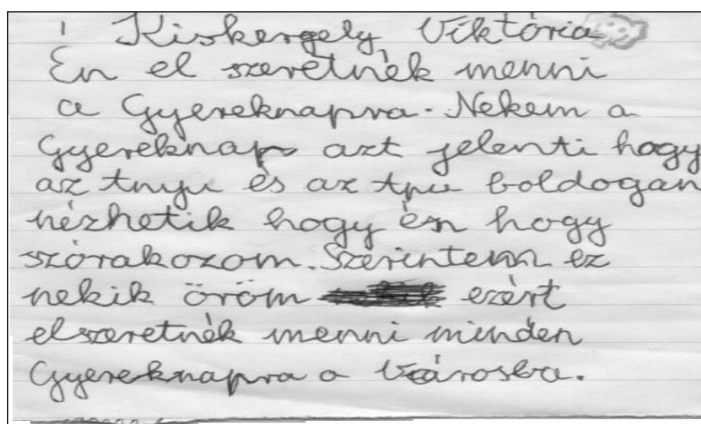 Kiskergely Viktória
Én el szeretnék menni
a Gyereknapra. Nekem a
Gyereknap azt jelenti hogy
az Anyu és az Apu boldogan
nézhetik hogy én hogy
szórakozom. Szerintem ez
nekik öröm ezért
elszeretnék menni minden
Gyereknapra a Városba.